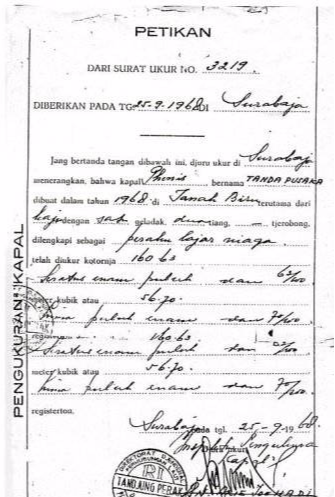 PETIKAN
DARI SURAT UKUR NO. 3219.
DIBERIKAN PADA TG. 25.9.1968 DI Surabaja
Jang bertanda tangan dibawah ini, djuru ukur di Surabaja
menerangkan, bahwa kapal Phinis bernama TANDA PUSAKA
dibuat dalam tahun 1968 di Tanah Biru terutama dari
kaju dengan satu geladak, dua tiang, — tjerobong,
dilengkapi sebagai perahu lajar niaga
telah diukur kotornja 160.63
Seratus enam puluh dan 63/100
meter kubik atau 56.70.
lima puluh enam dan 70/100
160.63
Seratus enam puluh dan 63/100
meter kubik atau 56.70
lima puluh enam dan 70/100
registerton.
Surabaja pada tgl. 25-9-1968
PENGUKURAN KAPAL
TANDJUNG PERAK